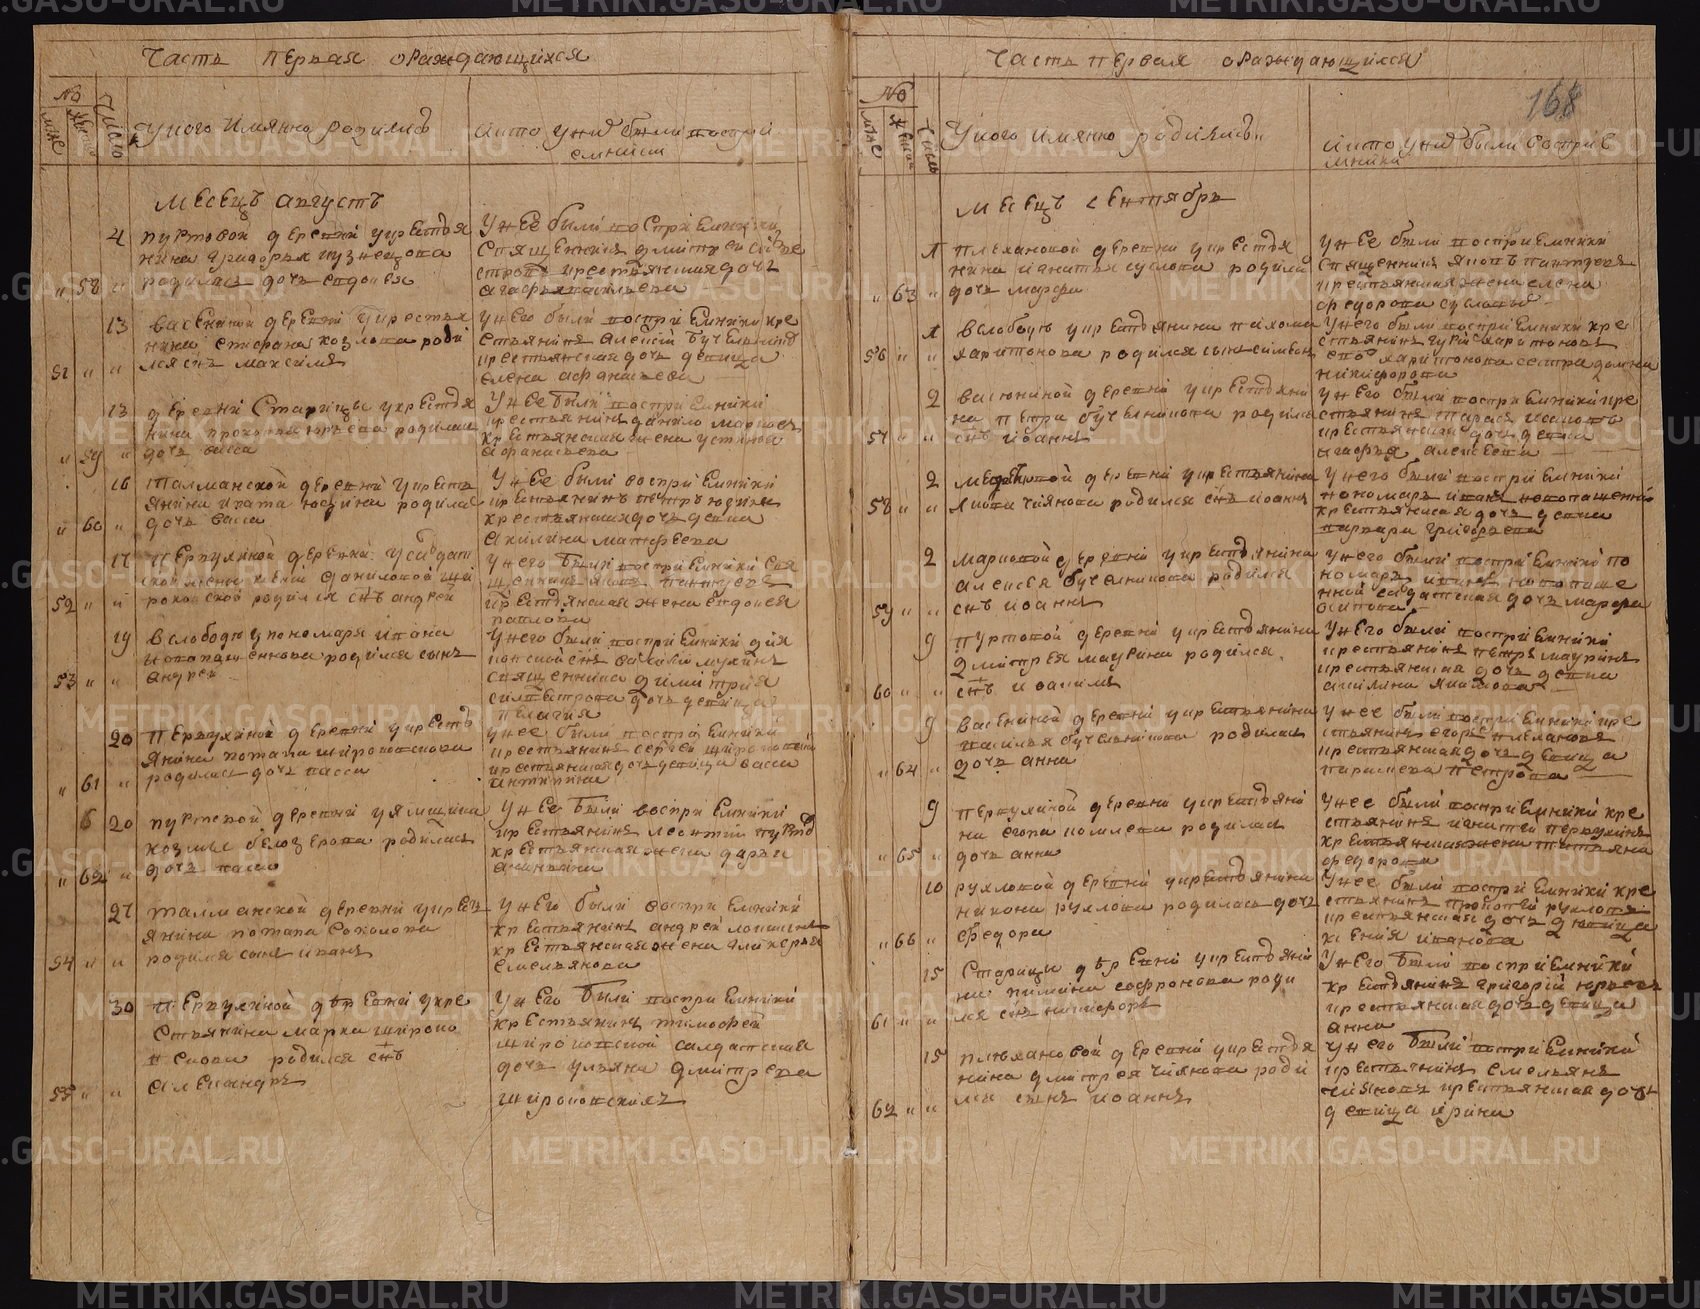 Часть первая ораждающихся
№
Число
У кого имянно родились
и кто у них были воспри
емники
месецъ августъ
4 пуртовой деревни укрестья
нина григорья кузнецова
58 родилась дочь евдокея
У нее были воспри емники
священникъ дмитрей силве
стровъ крестьянская дочь
агафья васильева
13 васениной деревни укрестья
нина стефана козлова роди
51 лся снъ максимъ
У него были воспри емники кре
стьянинъ алексей бучельников
крестьянская дочь девица
елена афонасьева
13 деревни Старицы укрестья
нина прокопья юрьева родилась
59 дочь васса
У нее были воспри емники
крестьянинъ данило
крестьянская жена устинья
афанасьева
16 талманской деревни укресть
янина ипата юдина родилас
60 дочь васа
У нее были воспри емники
крестьянинъ петръ юдинъ
крестьянская дочь девица
акилина матфеева
17 первухиной деревни у салдат
ской жены даниловой ши
52 роковской родился снъ андрей
У него были воспри емники свя
щенникъ яковъ
крестьянская жена евдокея
павлова
19 в слободу упономаря ивана
новопашеннова родился сынъ
53 андрей
У него были воспри емники дия
конской снъ василий мухинъ
священника димитрия
силвестрова дочь девица
пелагия
20 первухиной деревни укресть
янина потапа широковскова
61 родилась дочь васса
у нее были воспри емники
крестьянинъ сергей широковской
крестьянская дочь девица васса
антипина
20 пуртовой деревни у ямщика
козмы белозерова родилась
62 дочь васса
У нее были воспри емники
крестьянинъ леонтий пуртов
крестьянская жена дарья
ананьина
27 талманской деревни укресть
янина потапа соколова
54 родился сынъ иванъ
У него были воспри емники
крестьянинъ андрей
крестьянская жена гликерья
емельянова
30 первухиной деревни укре
стьянина марка широко
вскова родился снъ
55 александръ
У него были воспри емники
крестьянинъ тимофей
широковской салдатская
дочь ульяна дмитрева
широковскихъ
Часть первая ораждающихся
168
№
Число
У кого имянно родились
и кто у них были воспри е
мники
месецъ сентябрь
1 плехановой деревни укрестья
нина игнатья суслова родилас
63 дочь марфа
У нее были воспри емники
священникъ яковъ
крестьянская жена елена
федорова суслова
1 в слободу укрестьянина пахома
56 харитонова родился сынъ симеон
У него были воспри емники кре
стьянинъ гурий харитоновъ
ево харитонова сестра домна
никифорова
2 васюниной деревни укрестьяни
на петра бучельникова родилс
57 снъ иоаннъ
У него были воспри емники кре
стьянинъ тарасъ исаковъ
крестьянская дочь девица
агафья алексеева
2 деревни укрестьянина
58 родился снъ иоаннъ
У него были воспри емники
пономарь иванъ новопашенной
крестьянская дочь девица
варвара григорьева
2 марковой деревни укрестьянина
алексея бучельникова родился
59 снъ иоаннъ
У него были воспри емники по
номарь иванъ новопаше
нной салдатская дочь марфа
осипова
9 пуртовой деревни укрестьянина
дмитрея маурина родился
60 снъ иоакимъ
У него были воспри емники
крестьянинъ петръ мауринъ
крестьянская дочь девица
акилина якимова
9 васениной деревни укрестьянина
василья бучельникова родилась
64 дочь анна
У нее были воспри емники кре
стьянинъ егоръ плехановъ
крестьянская дочь девица
парасковья петрова
9 первухиной деревни укрестьяни
на егора комлева родилась
65 дочь анна
У нее были воспри емники кре
стьянинъ игнатей первухинъ
крестьянская жена татьяна
федорова
10 рухловой деревни укрестьянина
никона рухлова родилась дочь
66 федора
У нее были воспри емники кре
стьянинъ прокопей рухловъ
крестьянская дочь девица
ксения иванова
15 Старицы деревни укрестьяни
на пимина софронова роди
61 лся снъ никифоръ
У него были воспри емники
крестьянинъ григорий юрьевъ
крестьянская дочь девица
анна
15 плехановой деревни укрестья
нина дмитрея роди
62 лся сынъ иоаннъ
У него были воспри емники
крестьянинъ емельянъ
крестьянская дочь
девица ирина